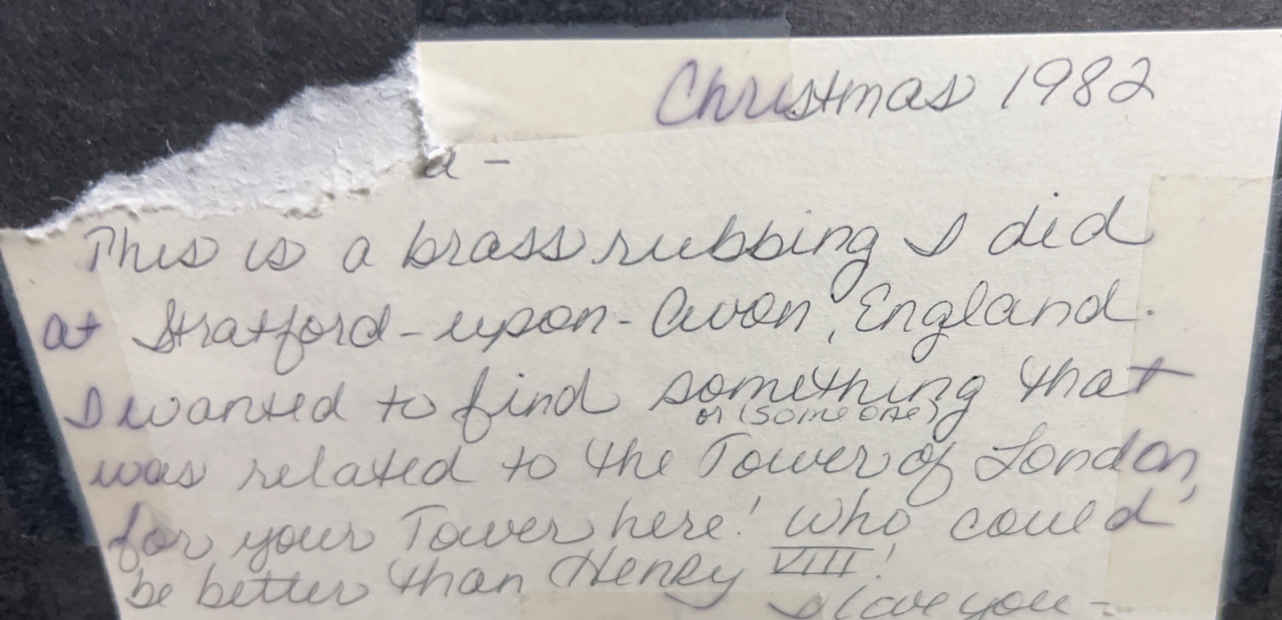 Christmas 1982
a -
This is a brass rubbing I did
at Stratford-upon-Avon, England.
I wanted to find something that
or (someone)
was related to the Tower of London,
for your Tower here! Who could
be better than Henry VIII!
I love you -